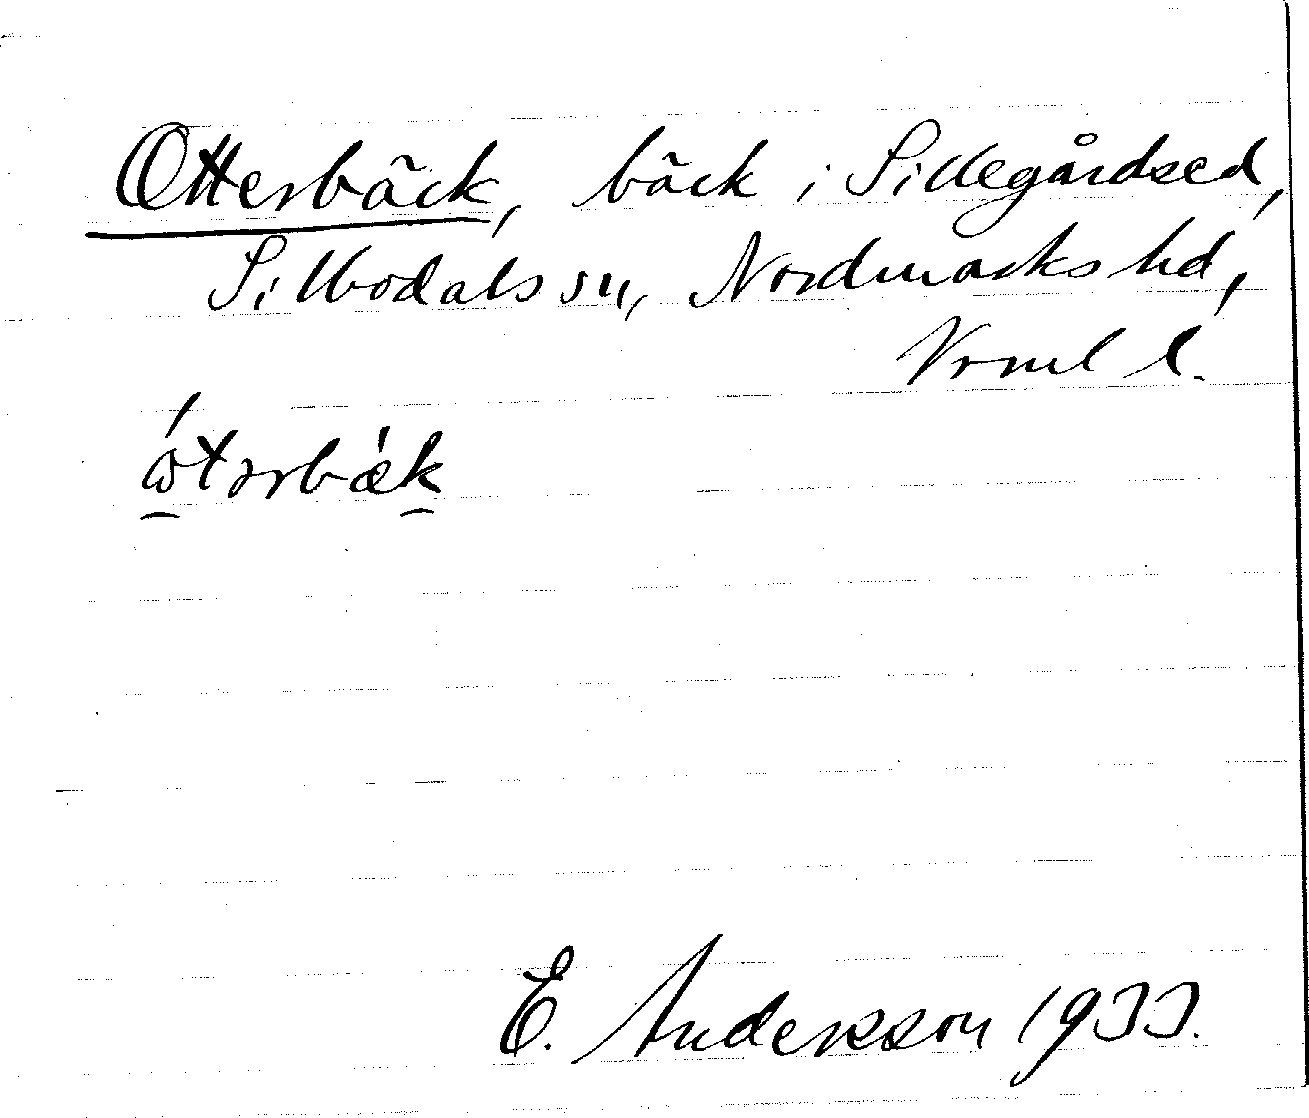 Otterbäck, bäck i Sillegårdsed,
Sillbodals sn, Nordmarks hd,
Vrml l.
ώtərbæ̀k
E. Andersson 1933.